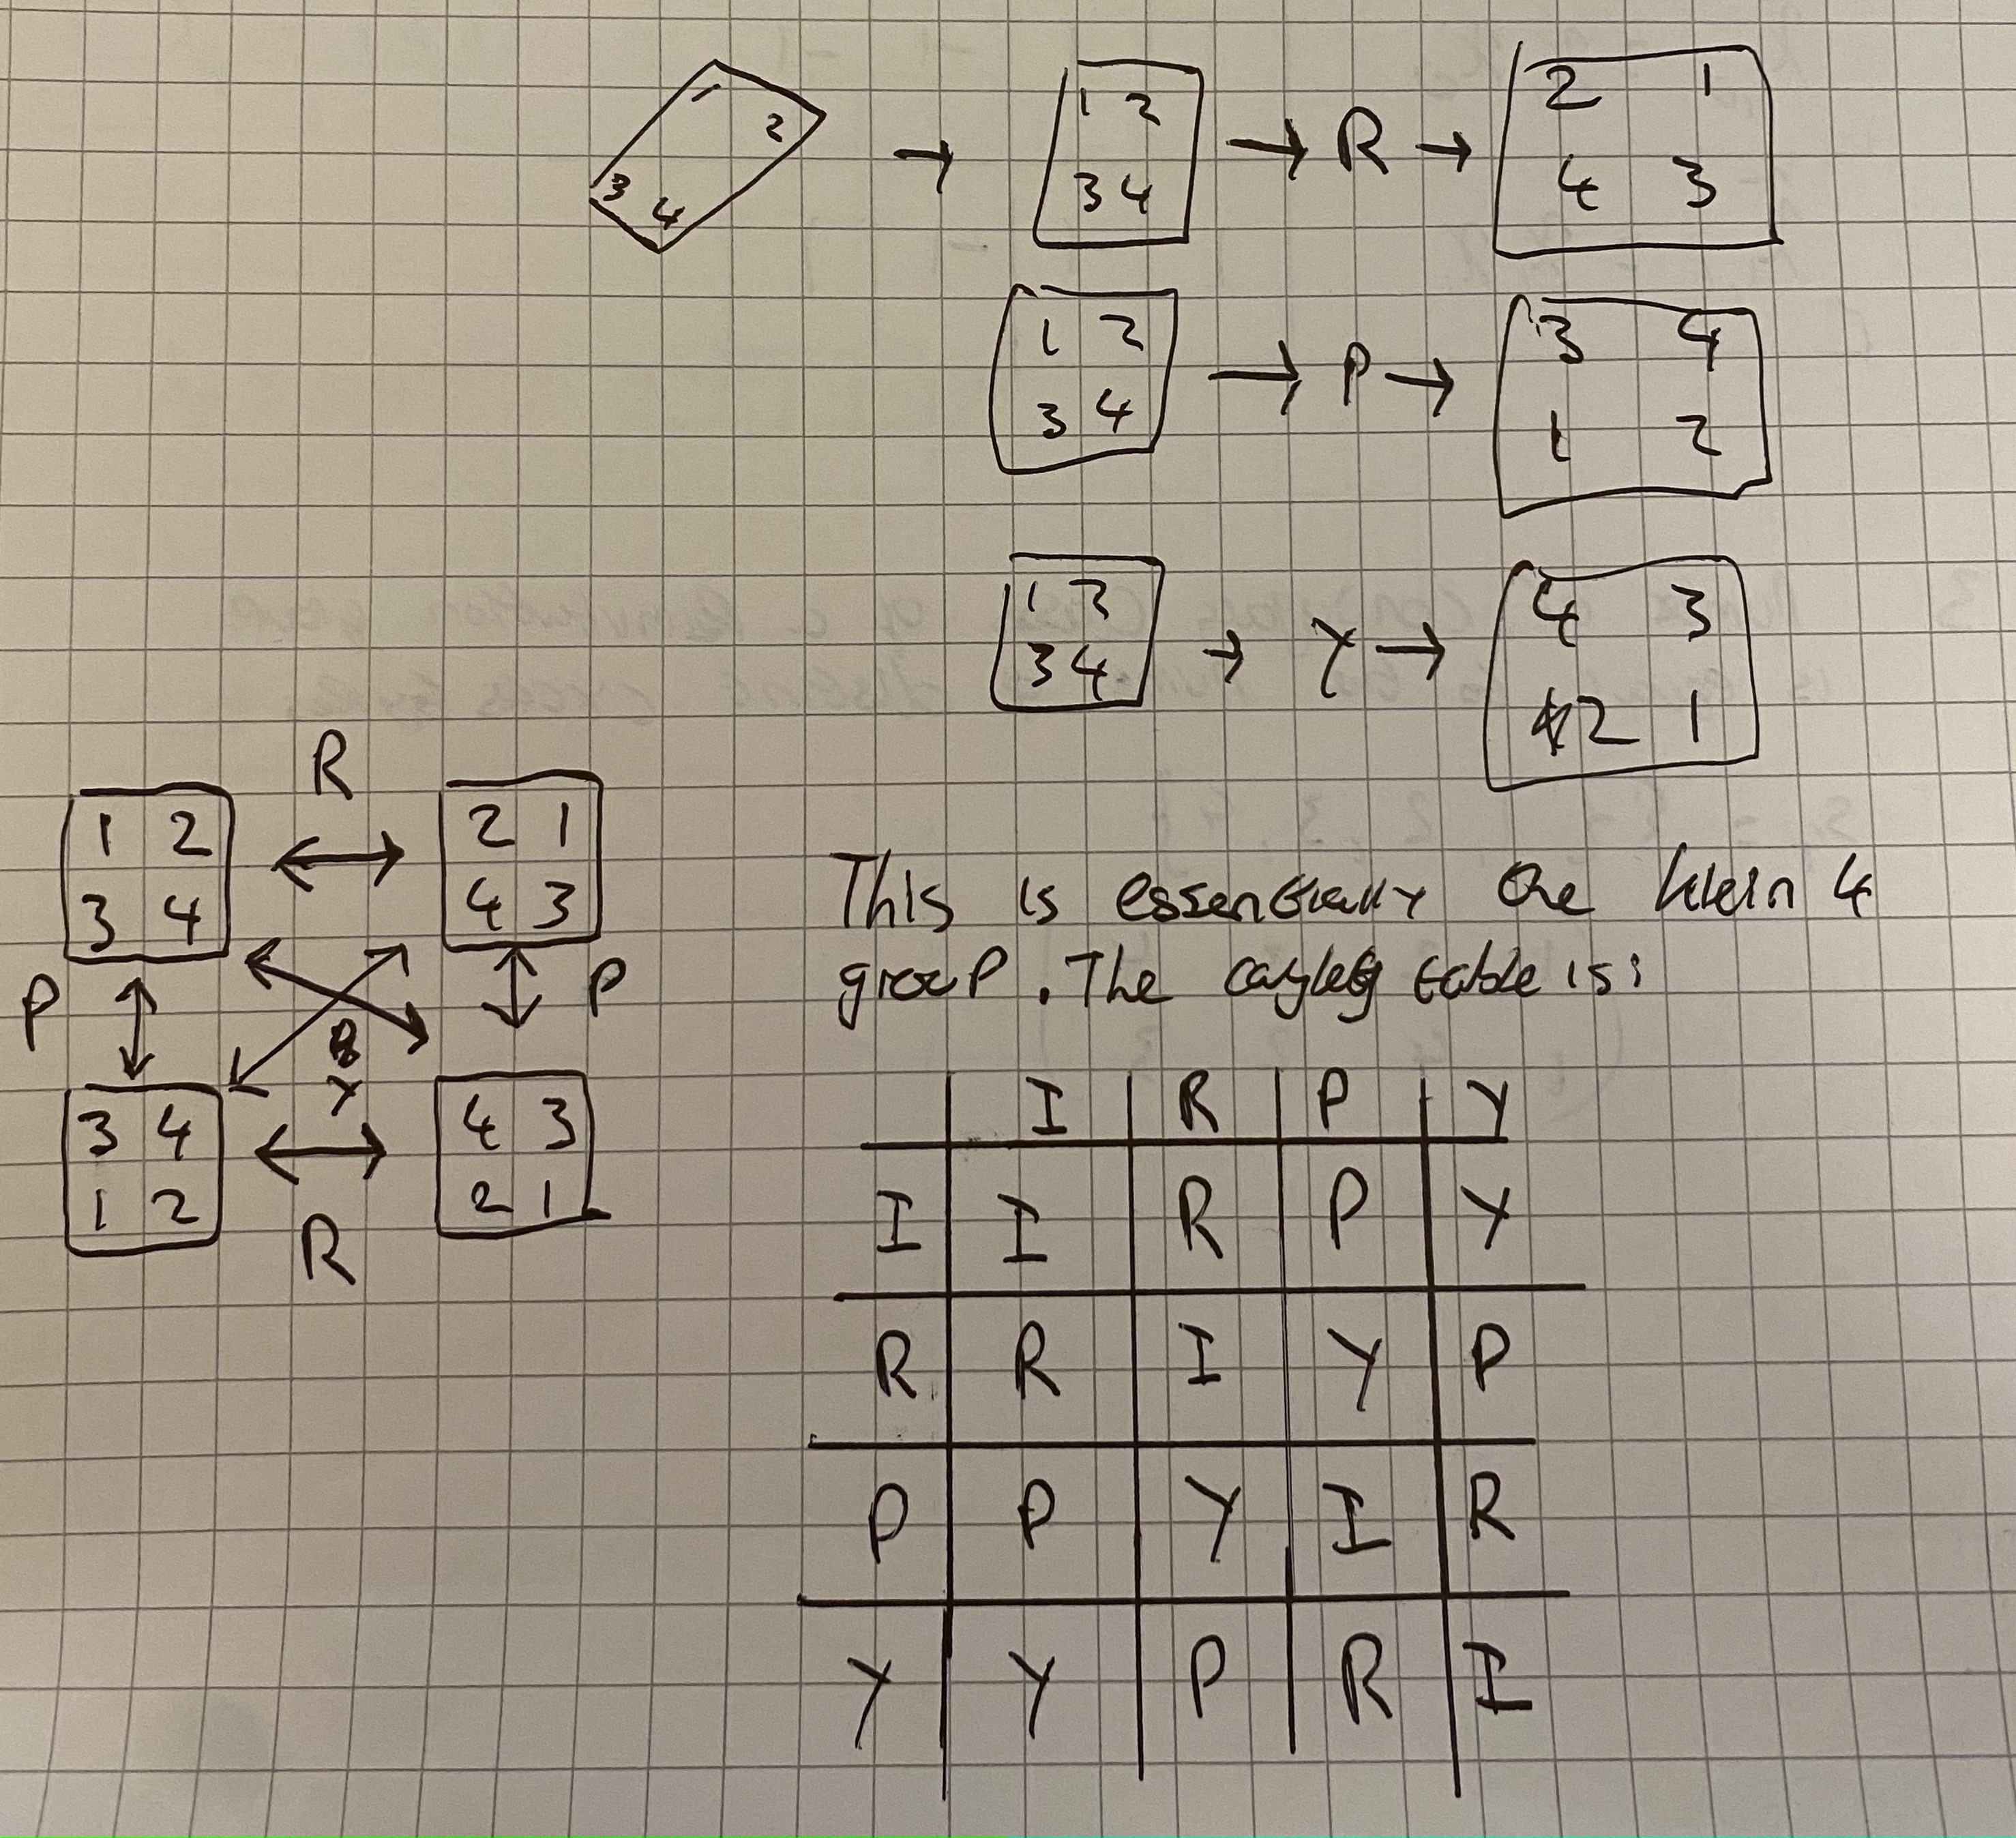 1 2
3 4
→
1 2
3 4
→ R →
2 1
4 3
1 2
3 4
→ P →
3 4
1 2
1 2
3 4
→ Y →
4 3
2 1
R
1 2
3 4
↔
2 1
4 3
P
P
Y
3 4
1 2
↔
4 3
2 1
R
This is essentially the klein 4
group. The cayley table is:
I R P Y
I I R P Y
R R I Y P
P P Y I R
Y Y P R I